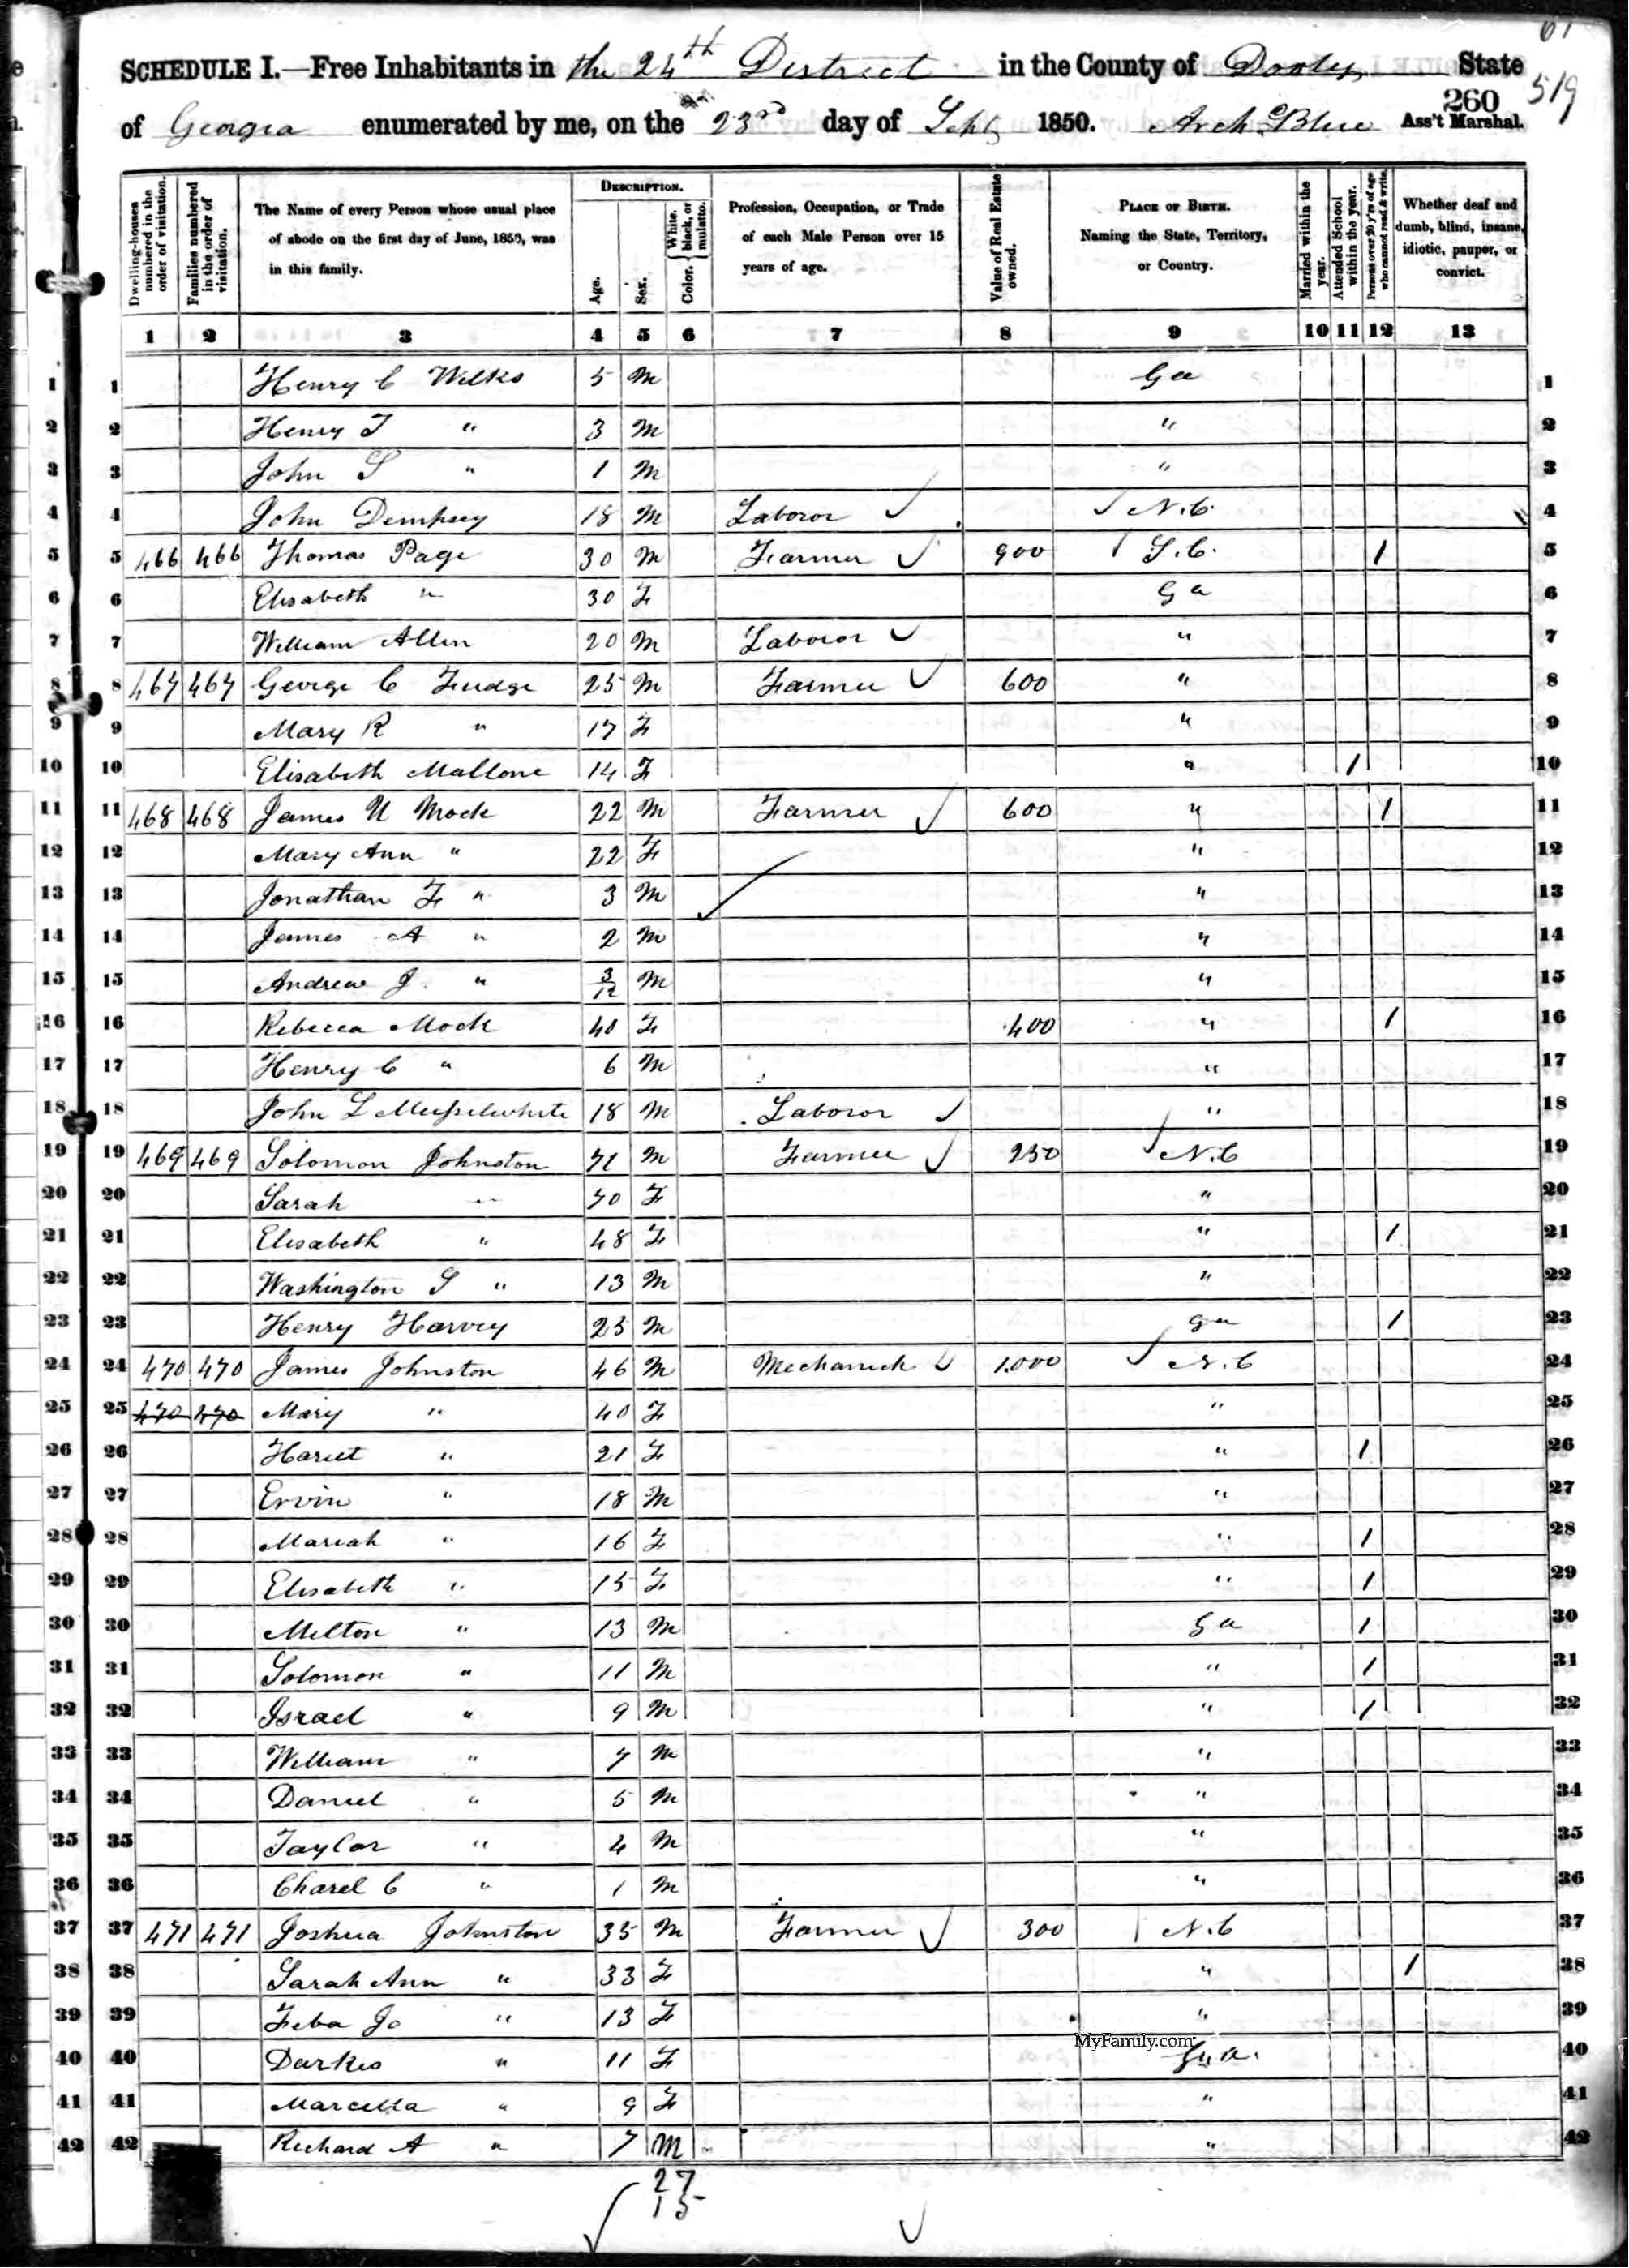 61
SCHEDULE I.—Free Inhabitants in the 24th District in the County of Dooly State
519
260
of Georgia enumerated by me, on the 23rd day of Sept 1850. Arch Blue Ass't Marshal.
Dwelling-houses numbered in the order of visitation.
Families numbered in the order of visitation.
The Name of every Person whose usual place of abode on the first day of June, 1850, was in this family.
DESCRIPTION.
Age.
Sex.
Color. { White, black, or mulatto.
Profession, Occupation, or Trade of each Male Person over 15 years of age.
Value of Real Estate owned.
PLACE OF BIRTH. Naming the State, Territory, or Country.
Married within the year.
Attended School within the year.
Persons over 20 y'rs of age who cannot read & write.
Whether deaf and dumb, blind, insane, idiotic, pauper, or convict.
1 2 3 4 5 6 7 8 9 10 11 12 13
1 1 Henry C Wilks 5 M Ga 1
2 2 Henry T " 3 M " 2
3 3 John S " 1 M " 3
4 4 John Dempsey 18 M Laboror N.C. 4
5 5 466 466 Thomas Page 30 M Farmer 900 S.C. 1 5
6 6 Elisabeth " 30 F Ga 6
7 7 William Allen 20 M Laboror " 7
8 8 467 467 George C Fudge 25 M Farmer 600 " 8
9 9 Mary R " 17 F " 9
10 10 Elisabeth Mallone 14 F " 1 10
11 11 468 468 James N Mock 22 M Farmer 600 " 1 11
12 12 Mary Ann " 22 F " 12
13 13 Jonathan F " 3 M " 13
14 14 James A " 2 M " 14
15 15 Andrew J. " 3/12 M " 15
16 16 Rebecca Mock 40 F 400 " 1 16
17 17 Henry C " 6 M " 17
18 18 John L Musselwhite 18 M Laboror " 18
19 19 469 469 Solomon Johnston 71 M Farmer 250 N.C 19
20 20 Sarah " 70 F " 20
21 21 Elisabeth " 48 F " 1 21
22 22 Washington S " 13 M " 22
23 23 Henry Harvey 23 M Ga 1 23
24 24 470 470 James Johnston 46 M Mechanick 1.000 N.C 24
25 25 470 470 Mary " 40 F " 25
26 26 Hariet " 21 F " 1 26
27 27 Ervin " 18 M " 27
28 28 Mariah " 16 F " 1 28
29 29 Elisabeth " 15 F " 1 29
30 30 Melton " 13 M Ga 1 30
31 31 Solomon " 11 M " 1 31
32 32 Israel " 9 M " 1 32
33 33 William " 7 M " 33
34 34 Daniel " 5 M " 34
35 35 Taylor " 4 M " 35
36 36 Charel C " 1 M " 36
37 37 471 471 Joshua Johnston 35 M Farmer 300 N.C 37
38 38 Sarah Ann " 33 F " 1 38
39 39 Feba Jo " 13 F " 39
MyFamily.com
40 40 Darkis " 11 F Ga. 40
41 41 Marcella " 9 F " 41
42 42 Richard A " 7 M " 42
27
15